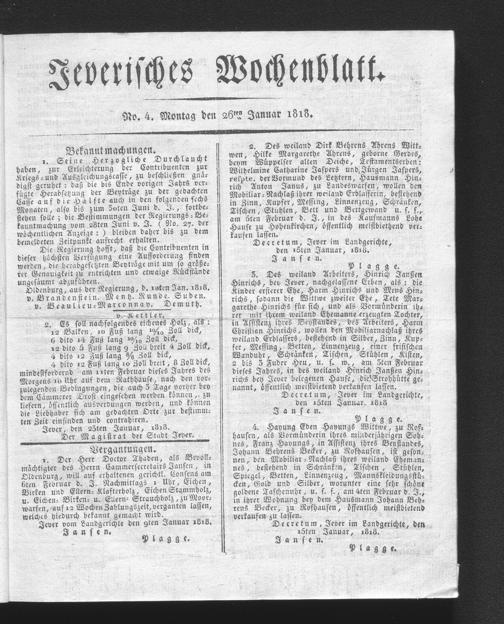 Jeverisches Wochenblatt.
No. 4. Montag den 26sten Januar 1818.
Bekanntmachungen.
1. Seine Herzogliche Durchlaucht
haben, zur Erleichterung der Contribuenten zur
Kriegs- und Ausgleichungscasse, zu beschließen gnä-
digst geruhet: daß die bis Ende vorigen Jahrs ver-
fügte Herabsetzung der Beyträge zu der gedachten
Casse auf die Hälfte auch in den folgenden sechs
Monaten, also bis zum 30sten Juni d. J., fortbe-
stehen solle; die Bestimmungen der Regierungs-Be-
kanntmachung vom 28sten Juni v. J. (No. 27. der
wöchentlichen Anzeige) bleiben daher bis zu dem
bemeldeten Zeitpunkt aufrecht erhalten.
Die Regierung hofft, daß die Contribuenten in
dieser höchsten Verfügung eine Aufforderung finden
werden, die herabgesetzten Beyträge mit um so größe-
rer Genauigkeit zu entrichten und etwaige Rückstände
ungesäumt abzuführen.
Oldenburg, aus der Regierung, d. 10ten Jan. 1818.
v. Brandenstein. Mentz. Runde. Suden.
v. Beaulieu-Marconnay. Demuth.
v. Kettler.
2. Es soll nachfolgendes eichenes Holz, als:
12 Balken, 10 Fuß lang
6 dito 14 Fuß lang Zoll dick,
12 dito 8 Fuß lang 9 Zoll breit 4 Zoll dick,
4 dito 12 Fuß lang Zoll dick,
4 dito 12 Fuß lang 10 Zoll breit, 8 Zoll dick,
mindestbietend am 11ten Februar dieses Jahres des
Morgens 10 Uhr auf dem Rathhause, nach den vor-
zulegenden Bedingungen, die auch 3 Tage vorher bey
dem Cämmerer Trost eingesehen werden können, zu
liefern, öffentlich ausverdungen werden, und können
die Liebhaber sich am gedachten Orte zur bestimm-
ten Zeit einfinden und contrahiren.
Jever, den 23sten Januar, 1818.
Der Magistrat der Stadt Jever.
Vergantungen.
1. Der Herr Doctor Thaden, als Bevoll-
mächtigter des Herrn Cammerassessoris Jansen, in
Oldenburg, will auf erhaltenen gerichtl. Consens am
6ten Februar d. J. Nachmittags 1 Uhr, Eichen,
Birken und Ellern-Klafterholz, Eichen Stammholz,
u. Eichen-Birken- u. Ellern-Strauchholz, zu Moor-
warfen, auf 12 Wochen Zahlungszeit, verganten lassen,
welches hiedurch bekannt gemacht wird.
Jever vom Landgerichte den 9ten Januar 1818.
Jansen.
Plagge.
2. Des weiland Dirk Behrens Ahrens Witt-
wen, Hilke Margarethe Ahrens, geborne Gerdes,
beym Wüppelser alten Deiche, Testamentserben:
Wilhelmine Catharine Jaspers und Jürgen Jaspers,
respkte. der Vormund des Letztern, Hausmann Hin-
rich Anton Janus, zu Landeswarfen, wollen den
Mobiliar-Nachlaß ihrer weiland Erblasserin, bestehend
in Zinn, Kupfer, Messing, Linnenzeug, Schränken,
Tischen, Stühlen, Bett und Bettgewand u. s. f.,
am 5ten Februar d. J., in des Kaufmanns Lohe
Hause zu Hohenkirchen, öffentlich meistbietend ver-
kaufen lassen.
Decretum, Jever im Landgerichte,
den 15ten Januar, 1818.
Jansen.
Plagge.
3. Des weiland Arbeiters, Hinrich Janssen
Hinrichs, bey Jever, nachgelassene Erben, als: die
Kinder ersterer Ehe, Harm Hinrichs und Rens Hin-
richs, sodann die Wittwe zweiter Ehe, Tete Mar-
garethe Hinrichs für sich, und als Vormünderin ih-
rer mit ihrem weiland Ehemanne erzeugten Tochter,
in Assistenz ihres Beystandes, des Arbeiters, Harm
Christian Hinrichs, wollen den Mobiliarnachlaß ihres
weiland Erblassers, bestehend in Silber, Zinn, Kup-
fer, Messing, Betten, Linnenzeug, einer friesischen
Wanduhr, Schränken, Tischen, Stühlen, Kisten,
5 bis 6 Fuder Heu, u. s. w., am 3ten Februar
dieses Jahres, in des weiland Hinrich Jansen Hin-
richs bey Jever belegenen Hause, die Brodhörn ge-
nannt, öffentlich meistbietend verkaufen lassen.
Decretum, Jever im Landgerichte,
den 15ten Januar, 1818
Jansen.
Plagge.
4. Hayung Eden Hayungs Wittwe, zu Rof-
hausen, als Vormünderin ihres minderjährigen Soh-
nes, Franz Hayungs, in Assistenz ihres Beystandes,
Johann Behrens Becker, zu Rofhausen, ist gesonnen,
den Mobiliar-Nachlaß ihres weiland Ehemannes,
bestehend in Schränken, Tischen, Stühlen,
Spiegel, Betten, Linnenzeug, Mannskleidungsstük-
ken, Gold und Silber, worunter eine sehr schöne
goldene Taschenuhr, u. s. f., am 4ten Februar d. J.,
in ihrer Wohnung bey dem Hausmann Johann Beh-
rens Becker, zu Rofhausen, öffentlich meistbietend
verkaufen zu lassen.
Decretum, Jever im Landgerichte, den
15ten Januar, 1818.
Jansen.
Plagge.